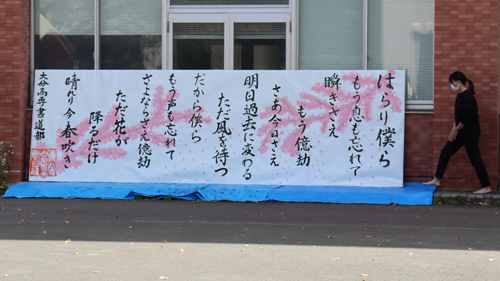 はらり僕ら
もう息も忘れて
瞬きさえ
もう億劫
さあ今日さえ
明日過去に変わる
ただ風を待つ
だから僕ら
もう声も忘れて
さよならさえ億劫
ただ花が
降るだけ
晴れり今春吹き
大分高専書道部